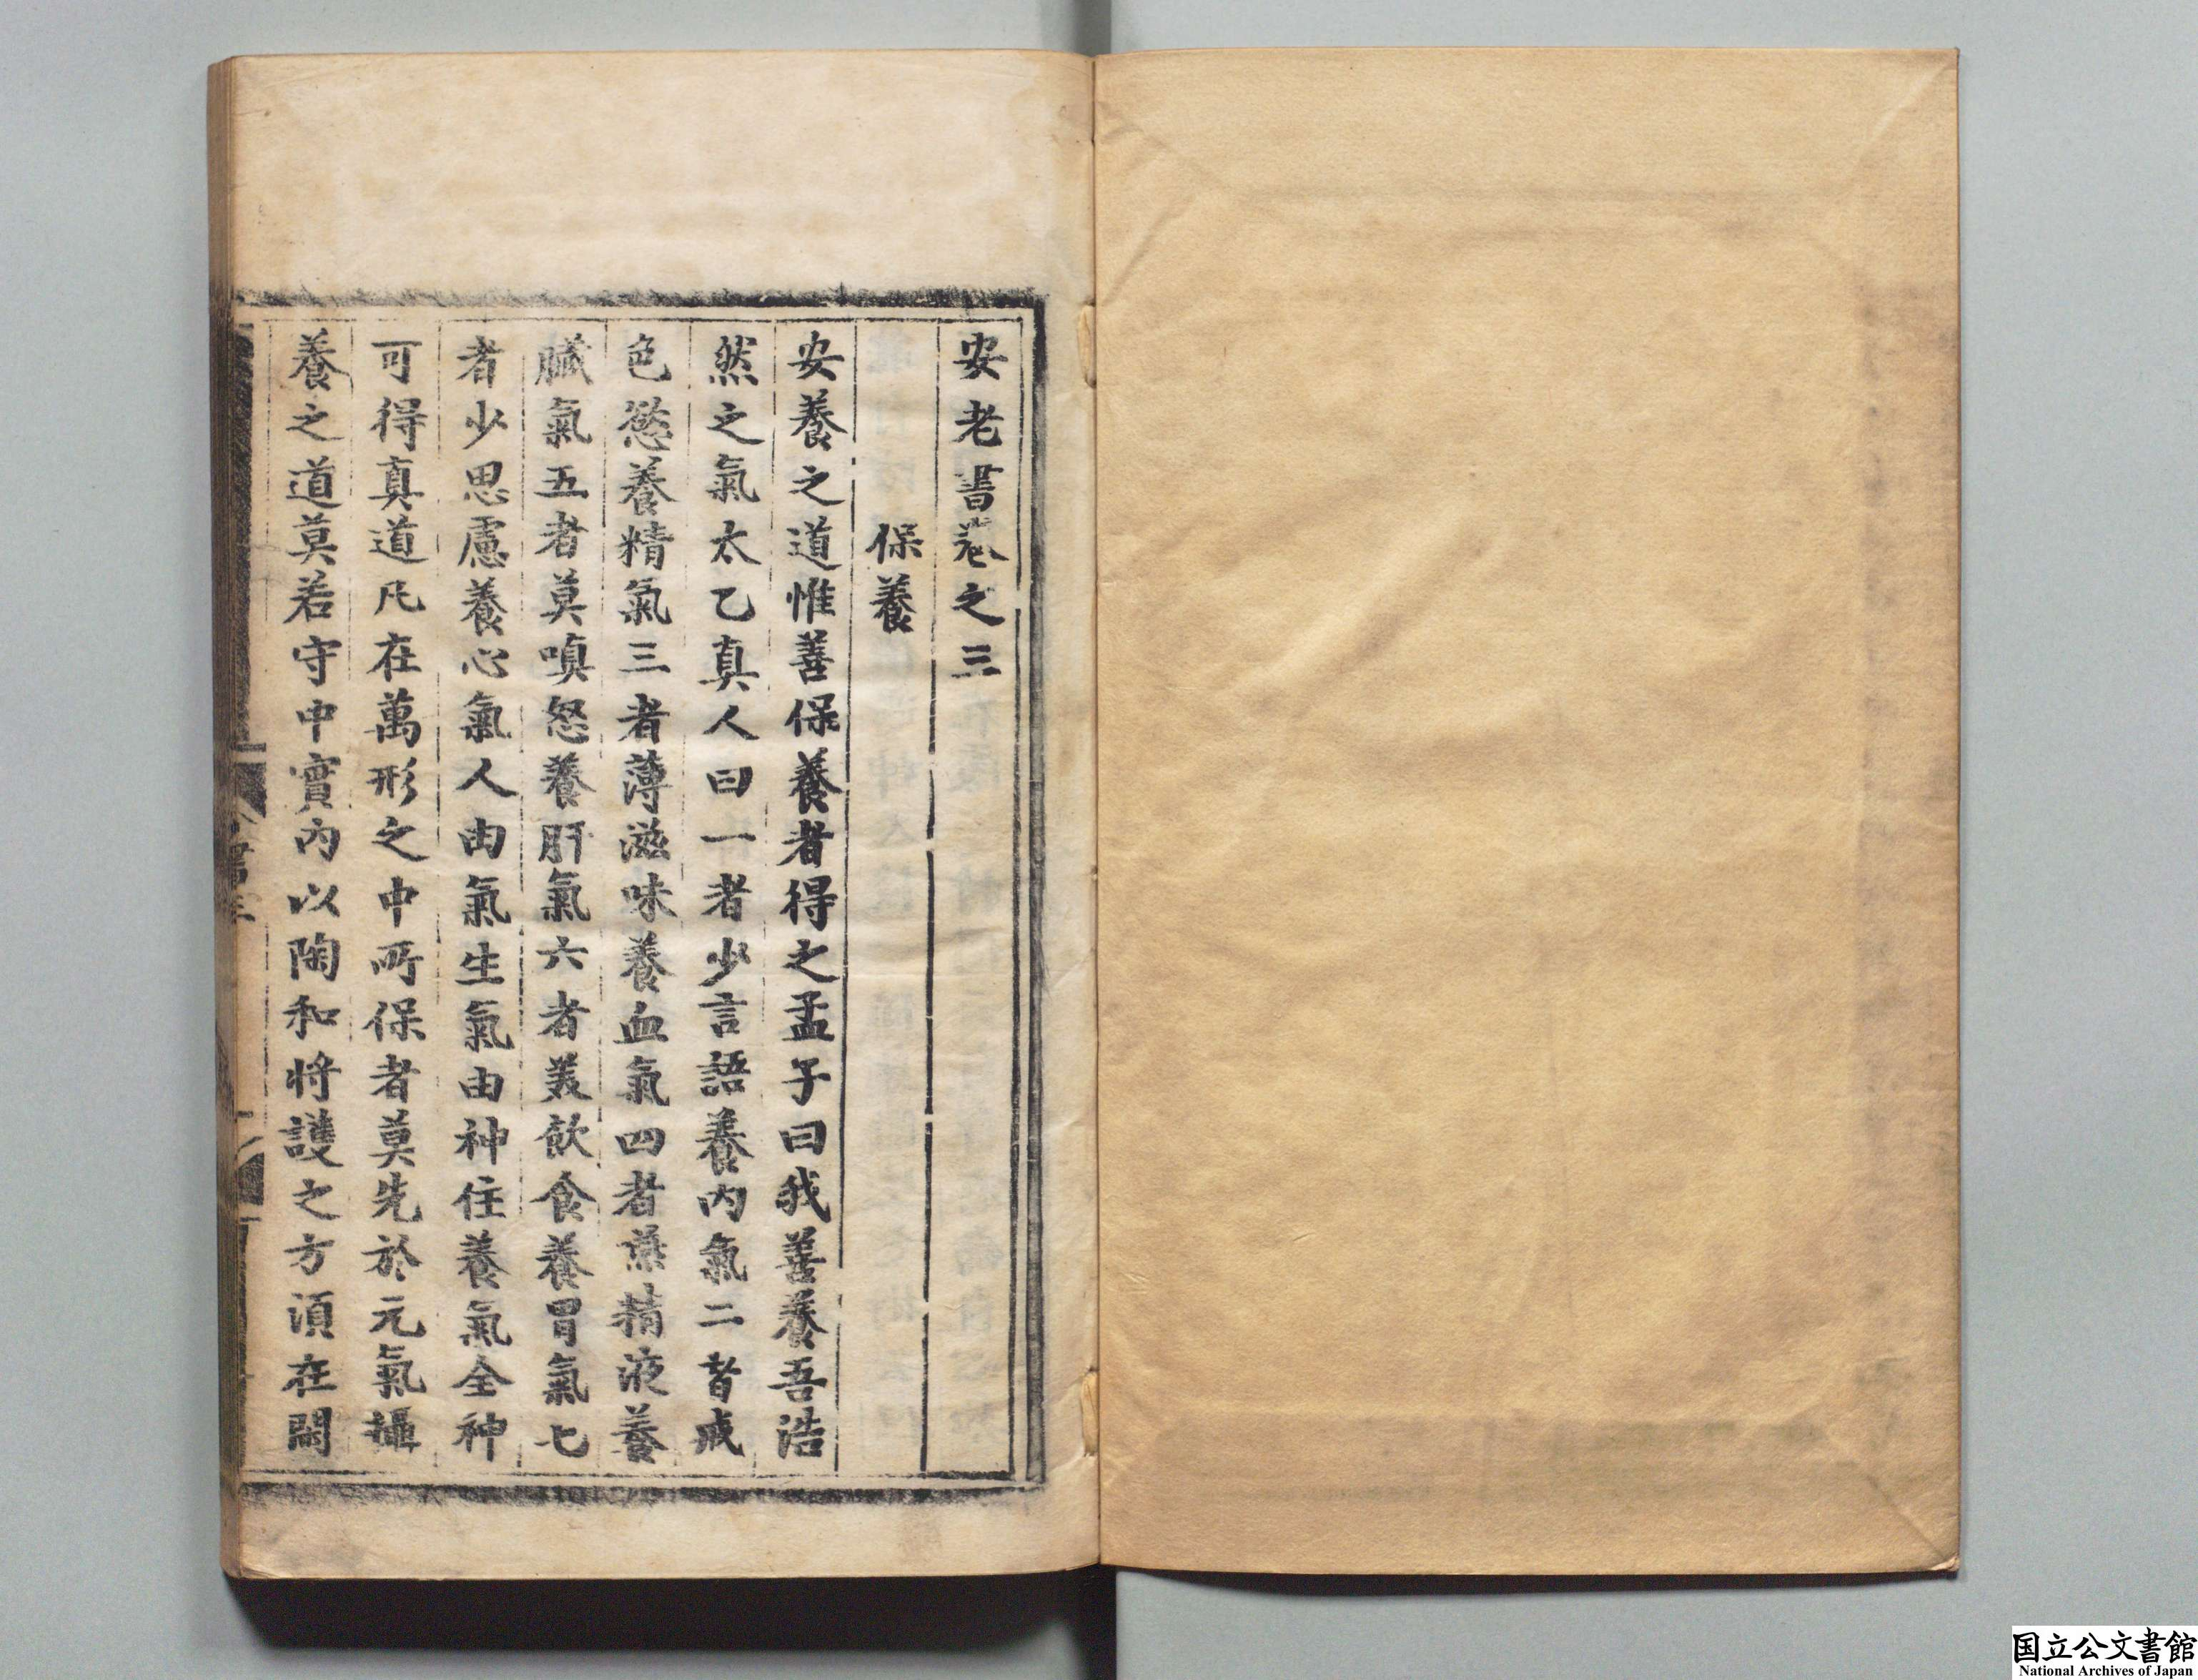 安老書卷之三
保養
安養之道惟善保養者得之孟子曰我善養吾浩
然之氣太乙真人曰一者少言語養内氣二者戒
色慾養精氣三者薄滋味養血氣四者嚥精液養
臓氣五者莫嗔怒養肝氣六者美飲食養胃氣七
者少思慮養心氣人由氣生氣由神住養氣全神
可得真道凡在萬形之中所保者莫先於元氣攝
養之道莫若守中實内以陶和將護之方須在閑
書三
国立公文書館
National Archives of Japan